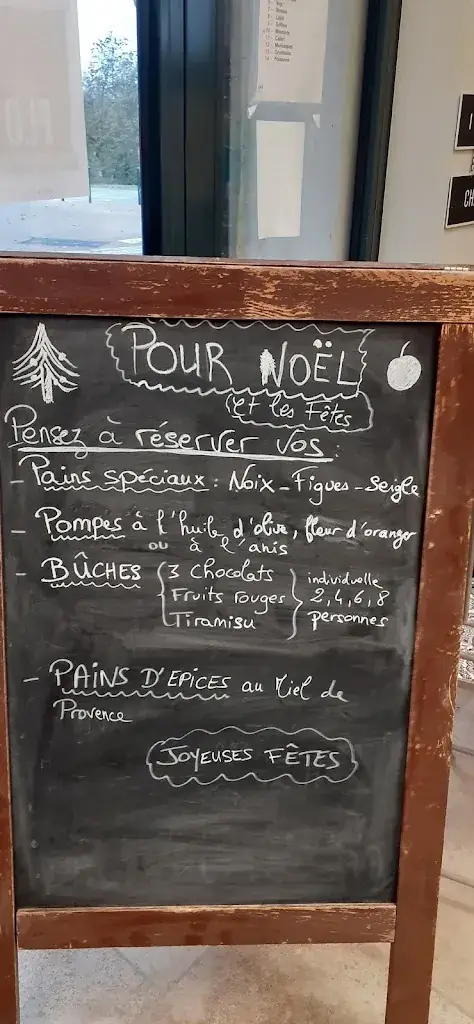 POUR NOËL
Et les Fêtes
Pensez à réserver vos :
- Pains spéciaux : Noix - Figues - Seigle
- Pompes à l'huile d'olive, fleur d'oranger
ou à l'anis
- BÛCHES { 3 Chocolats } individuelle
Fruits rouges 2, 4, 6, 8
Tiramisu personnes
- PAINS D'EPICES au Miel de
Provence
JOYEUSES FÊTES